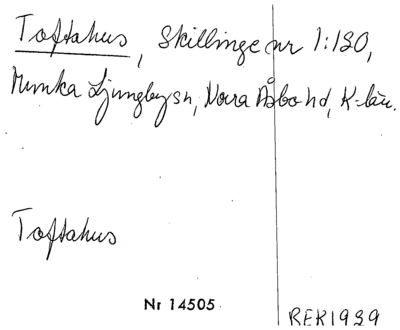 Toftahus, Skillinge nr 1:130,
Munka Ljungby sn, Norra Åsbo hd, K-län.
Toftahus
Nr 14505
REK1939